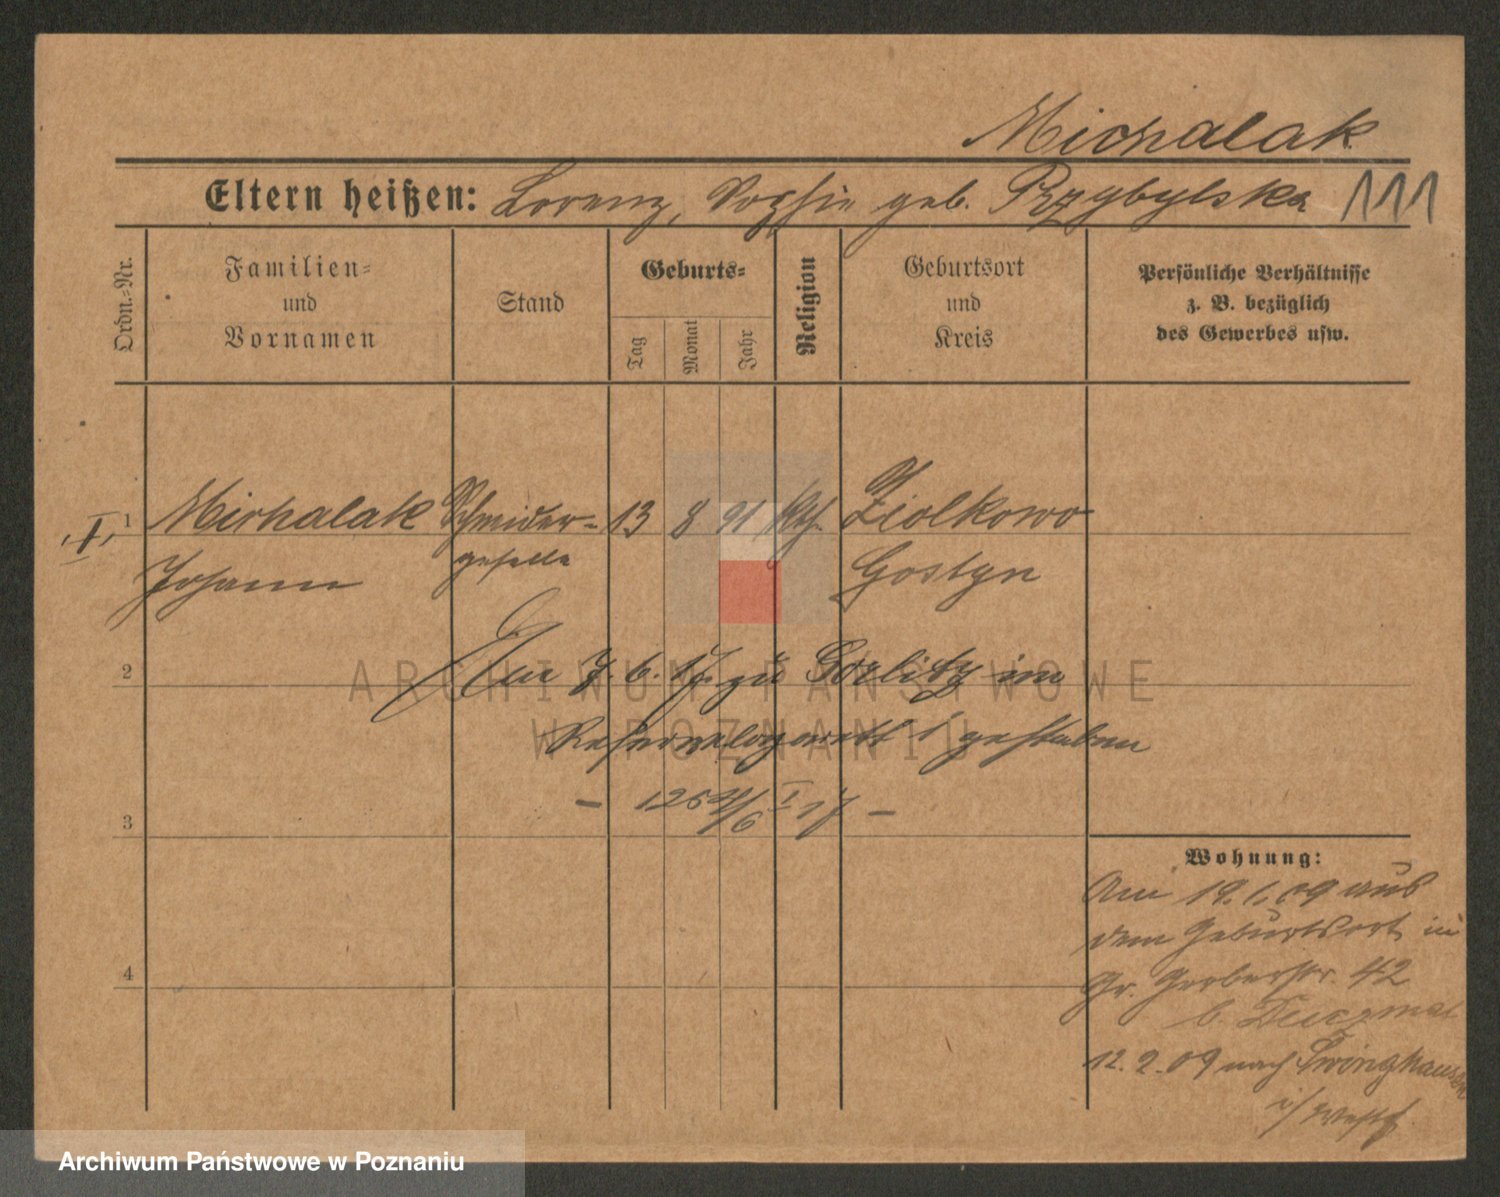 Michalak
Eltern heißen: Lorenz, Sophie geb. Przybylska 111
Ordn.-Nr.
Familien-
und
Vornamen
Stand
Geburts-
Tag
Monat
Jahr
Religion
Geburtsort
und
Kreis
Persönliche Verhältnisse
z. B. bezüglich
des Gewerbes usw.
I, 1 Michalak Schneider- 13 8 91 kth. Ziolkowo
Johann geselle Gostyn
2 Am 7.6.17. zu Görlitz im
Reservelazarett I gestorben
3
Wohnung:
Am 19.1.09 aus
dem Geburtsort in
Gr. Gerberstr. 42
b.
4
12.2.09 nach
i/ Westf.
ARCHIWUM PAŃSTWOWE
W POZNANIU
Archiwum Państwowe w Poznaniu